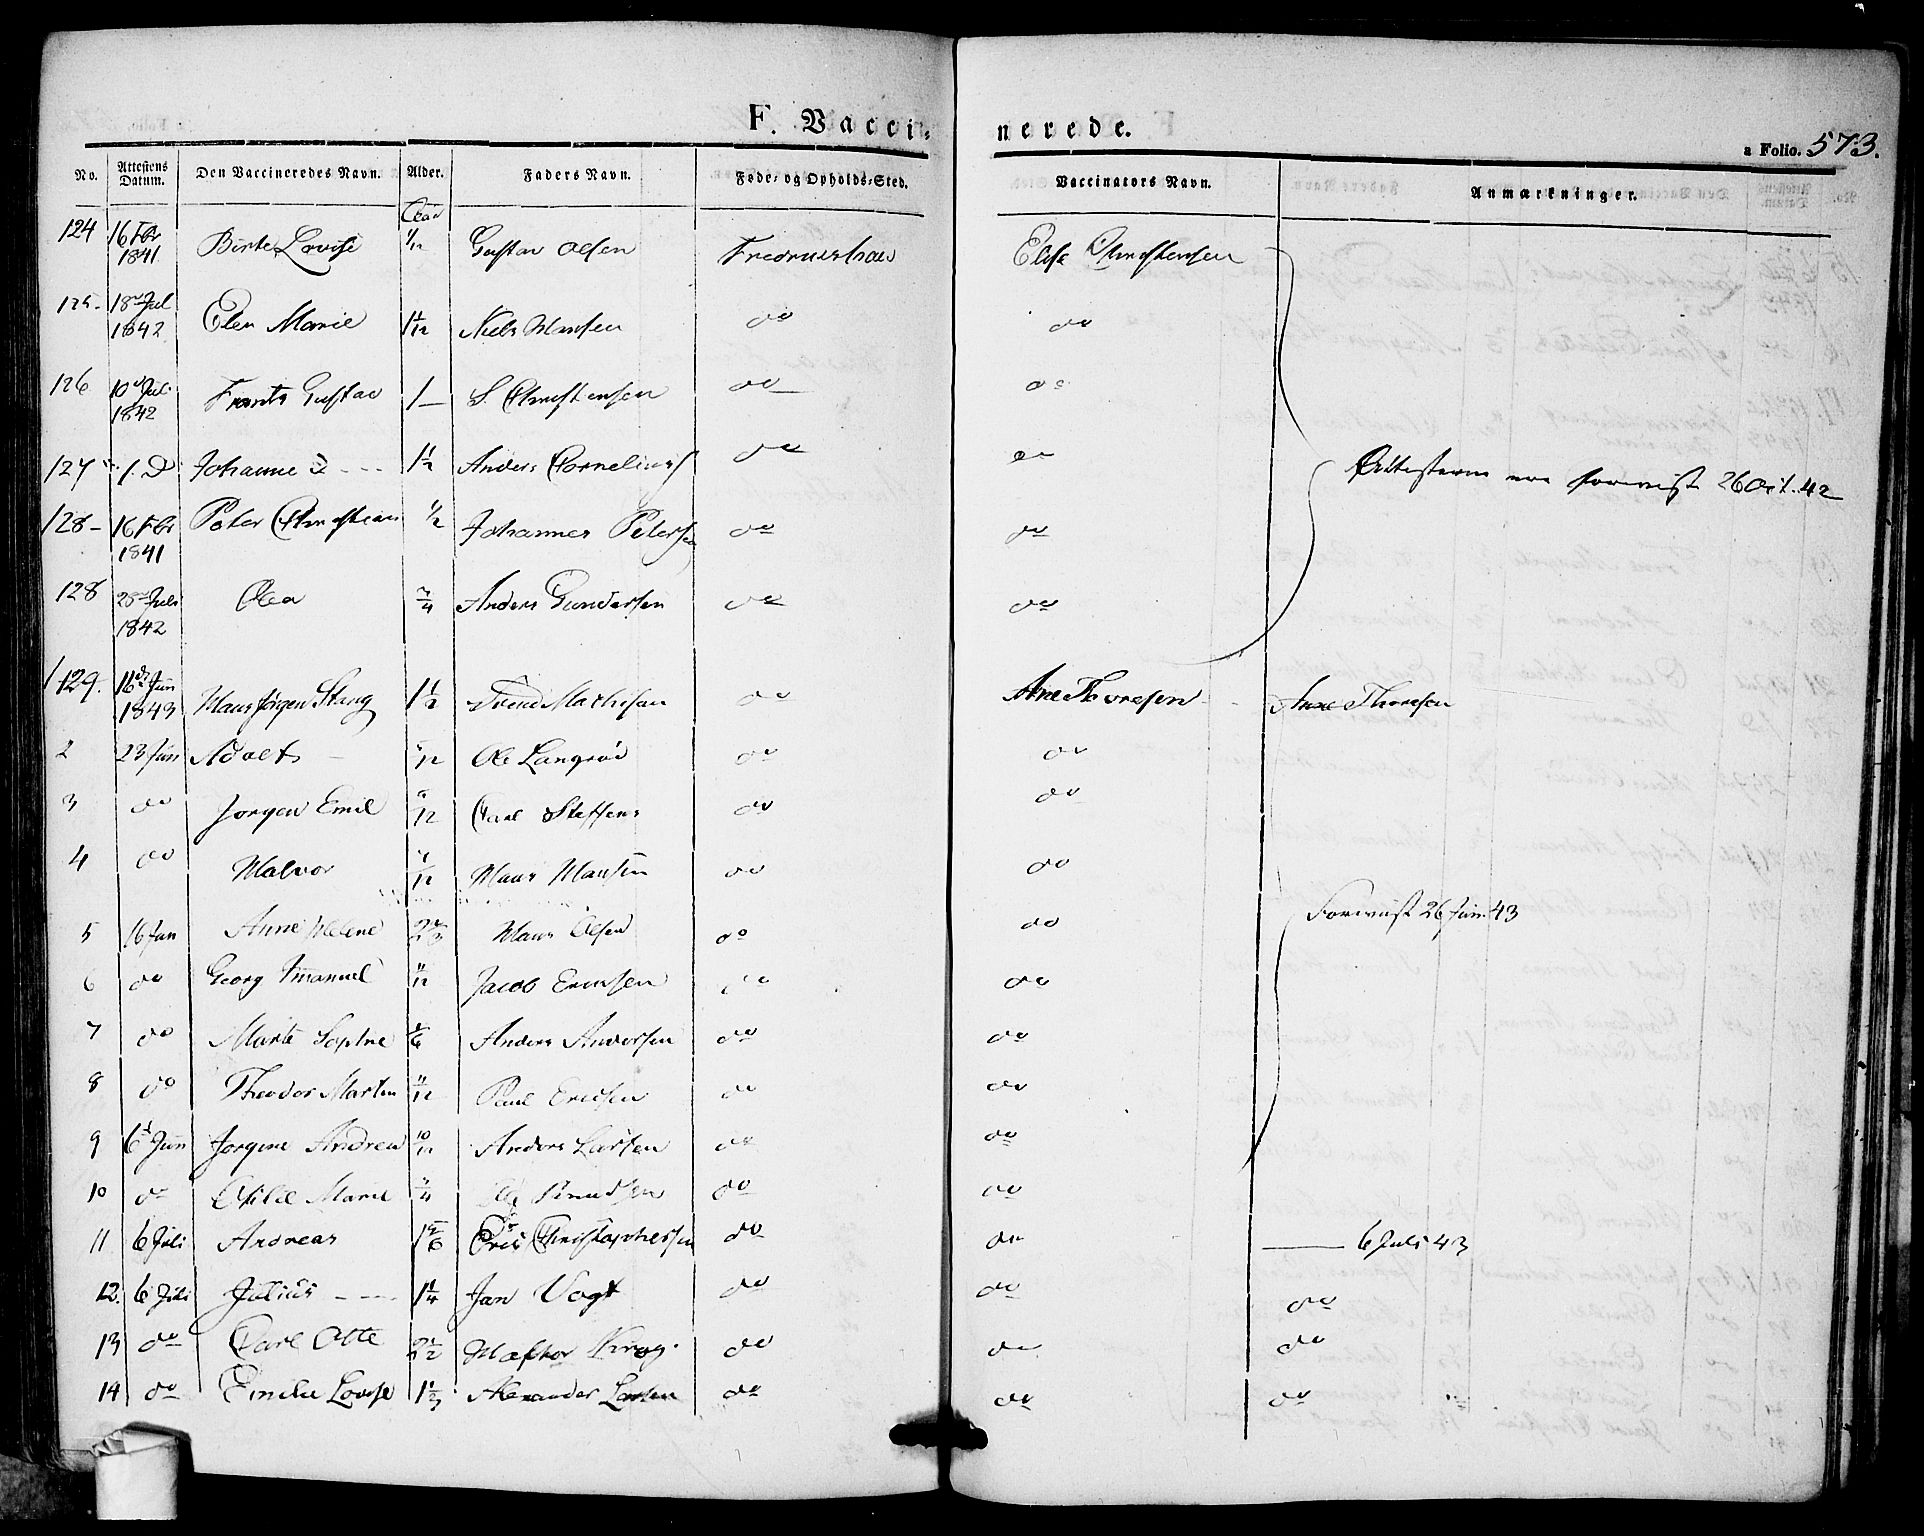 F. Vacci- nerede.
a Folio. 573.
No. Attestens Datum. Den Vaccineredes Navn. Alder. Faders Navn. Føde- og Opholds-Sted. Vaccinators Navn. Anmærkninger.
124 16 Fbr 1841 Birte Lovise 1/12 Gustav Olsen Fredrikshald Elise Christensen
125- 18de Jul 1842 Elen Marie 1 1/12 Niels Hansen do do
126 10de Jul 1842 Frants Gustav 1— S. Christensen do do
127 Johanne 1 1/2 Anders Cornelius do do Attesterne ere foreviist 26 Oct. 42
128- 16 Fbr 1841 Peter Christian 1/2 Johannes Petersen do do
128 28de Juli 1842 Olea 3/4 Anders Gundersen do do
129. 16de Jun 1843 Hans Jørgen Stang 1 1/2 Mathisen do Ane Thoresen Anne Thoresen
2 23 Jun Adolf /12 Ole Langrød do do
3 do Jørgen Emil /12 Carl Steffens do do
4 do Halvor /12 Hans Hansen do do
5 16 Jun Anne Helene 2 Hans Olsen do do Foreviist 26 Jun. 43
6 do Georg Imanuel 11/12 Jacob Ericksen do do
7 do Marte Sophie /6 Anders Andersen do do
8 do Theodor Martin 11/12 Paul Ericksen do do
9 6t Jun Jørgine Andrea 10/12 Anders Larsen do do
10 do Marie /4 Knudsen do do
11 6 Juli Andreas 1 5/6 Christophersen do do —— 6 Juli 43
12. 6 Juli Julius 1 1/4 Jan Vogt do do do
13 do Carl Otte 2 1/2 Krog. do do do
14 do Emilie Lovise 1 Alexander Larsen do do do